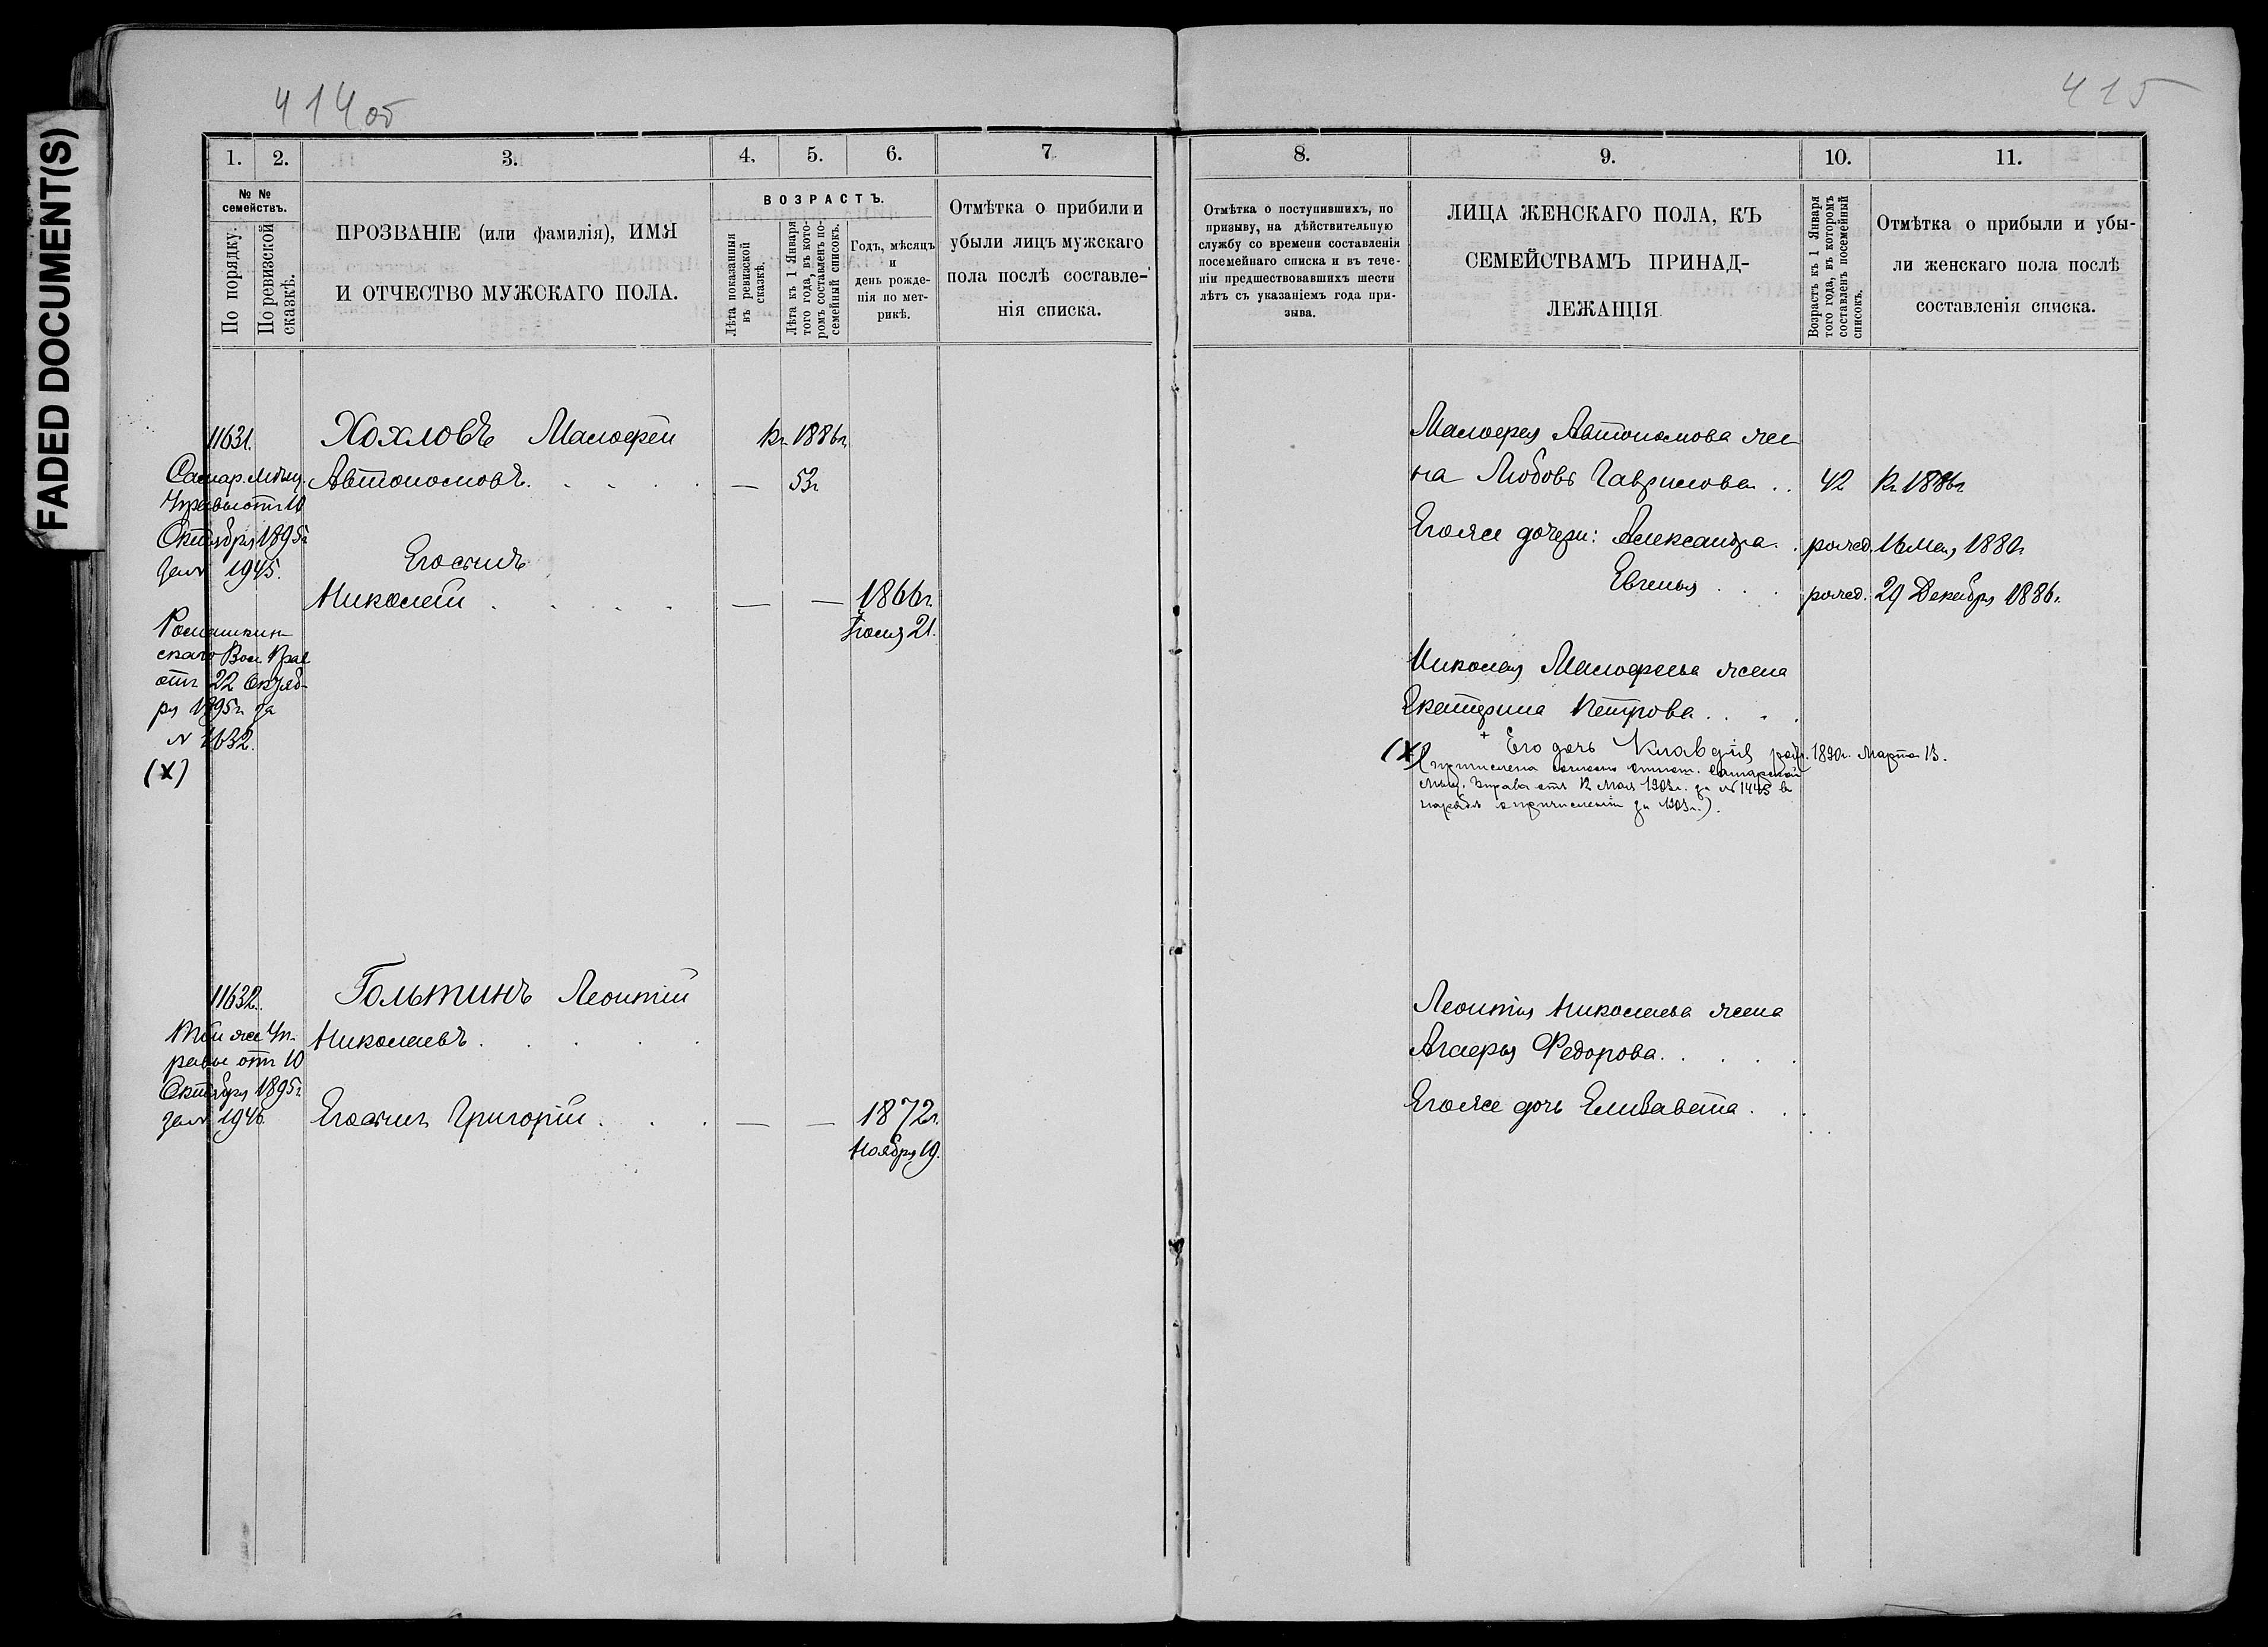 FADED DOCUMENT(S)
414 об
1. 2. 3. 4. 5. 6. 7
№ №
семействъ.
По порядку.
По ревизской
сказкѣ.
ПРОЗВАНІЕ (или фамилія), ИМЯ
И ОТЧЕСТВО МУЖСКАГО ПОЛА.
ВОЗРАСТЪ.
Лѣта показанныя
въ ревизской
сказкѣ.
Лѣта къ 1 Января
того года, въ кото-
ромъ составленъ по-
семейный списокъ.
Годъ, мѣсяцъ
и
день рожде-
нія по мет-
рикѣ.
Отмѣтка о прибили и
убыли лицъ мужскаго
пола послѣ составле-
нія списка.
11631. Хохловъ Малофей къ 1886г.
Самар. Мѣщ. Автономовъ. — 53г
Управы отъ 10
Октября 1895г
за № 1945.
Его сынъ
Николай — — 1866г.
21.
Ромашкин-
скаго Вол. Прав
отъ 22 Октяб-
ря 1895г за
№ 1632.
(X)
11632. Гольтинъ Леонтій
Той же Уп- Николаевъ
равы отъ 10
Октября 1895г
за № 1946. Его сынъ Григорій — — 1872г.
Ноября 19.
415
8. 9. 10. 11.
Отмѣтка о поступившихъ, по
призыву, на дѣйствительную
службу со времени составленія
посемейнаго списка и въ тече-
ніи предшествовавшихъ шести
лѣтъ съ указаніемъ года при-
зыва.
ЛИЦА ЖЕНСКАГО ПОЛА, КЪ
СЕМЕЙСТВАМЪ ПРИНАД-
ЛЕЖАЩІЯ
Возрастъ къ 1 Января
того года, въ которомъ
составленъ посемейный
списокъ.
Отмѣтка о прибыли и убы-
ли женскаго пола послѣ
составленія списка.
Малофея Автономова же
на Любовь Гаврилова 42 къ 1886г.
Его же дочери: Александра рожд. 16 Мая 1880г
Евгенья рожд. 29 Декабря 1886г.
Николая Малофеева жена
Екатерина Петрова
+ Его дочь Клавдія рожд. 1890г. Марта 13.
(X) (причислена согласно Самарской
Мѣщ. Управы отъ 12 Мая 1903г. за № 1445 въ
нарядѣ о причисленіи за 1903г.).
Леонтія Николаева жена
Агафья Федорова.
Его же дочь Елизавета